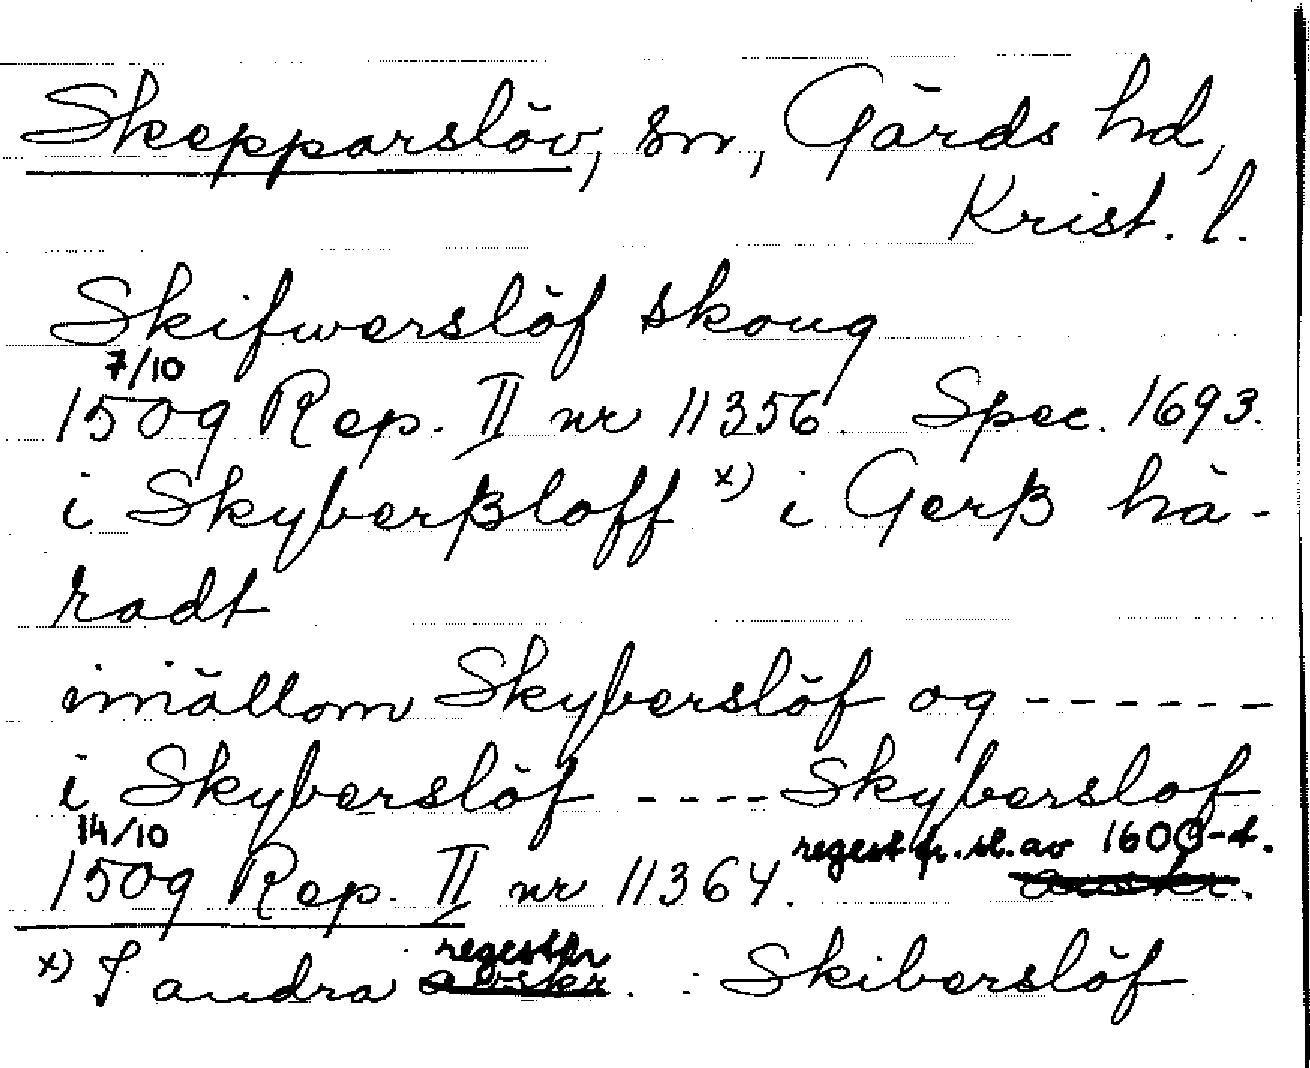 Skepparslöv, sn, Gärds hd,
Krist. l.
Skifwerslöf skoug
7/10
1509 Rep. II nr 11356. Spec. 1693.
i Skyberßloff x) i Gerß hä-
radt
imällom Skyberslöf og ------
i Skyberslöf ---- Skyberslof
14/10
1509 Rep. II nr 11364. regest fr. sl. av 1600-t.
avskr.
regestfr
x) I andra avskr. : Skiberslöf